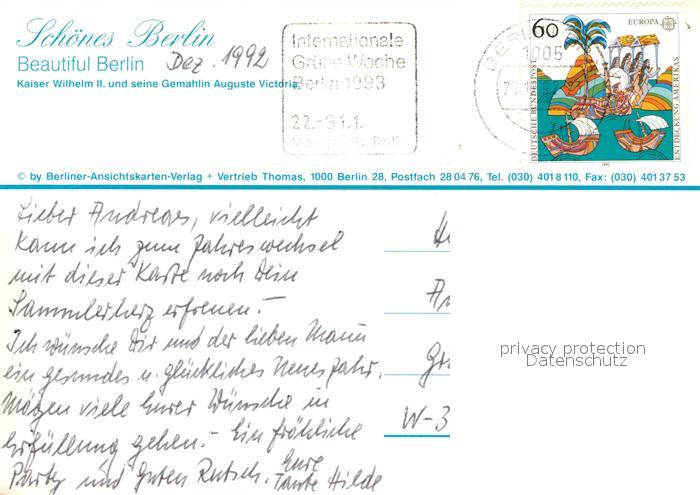 Schönes Berlin
Beautiful Berlin Dez. 1992
Kaiser Wilhelm II. und seine Gemahlin Auguste Victoria
Internationale
Grüne Woche
Berlin 1993
22.-31.1.
Berlin
BERLIN
1005
60
EUROPA
DEUTSCHE BUNDESPOST
ENTDECKUNG AMERIKAS
1992
© by Berliner-Ansichtskarten-Verlag + Vertrieb Thomas, 1000 Berlin 28, Postfach 28 04 76, Tel. (030) 401 8 110, Fax: (030) 401 37 53
Lieber Andreas, vielleicht
kann ich zum Jahreswechsel
mit dieser Karte noch Dein
Sammlerherz erfreuen. -
Ich wünsche Dir und der lieben Mami
ein gesundes u. glückliches Neues Jahr.
Mögen viele Eurer Wünsche in
Erfüllung gehen. - Ein fröhliche
Party und Guten Rutsch. Eure
Tante Hilde
W-3
privacy protection
Datenschutz